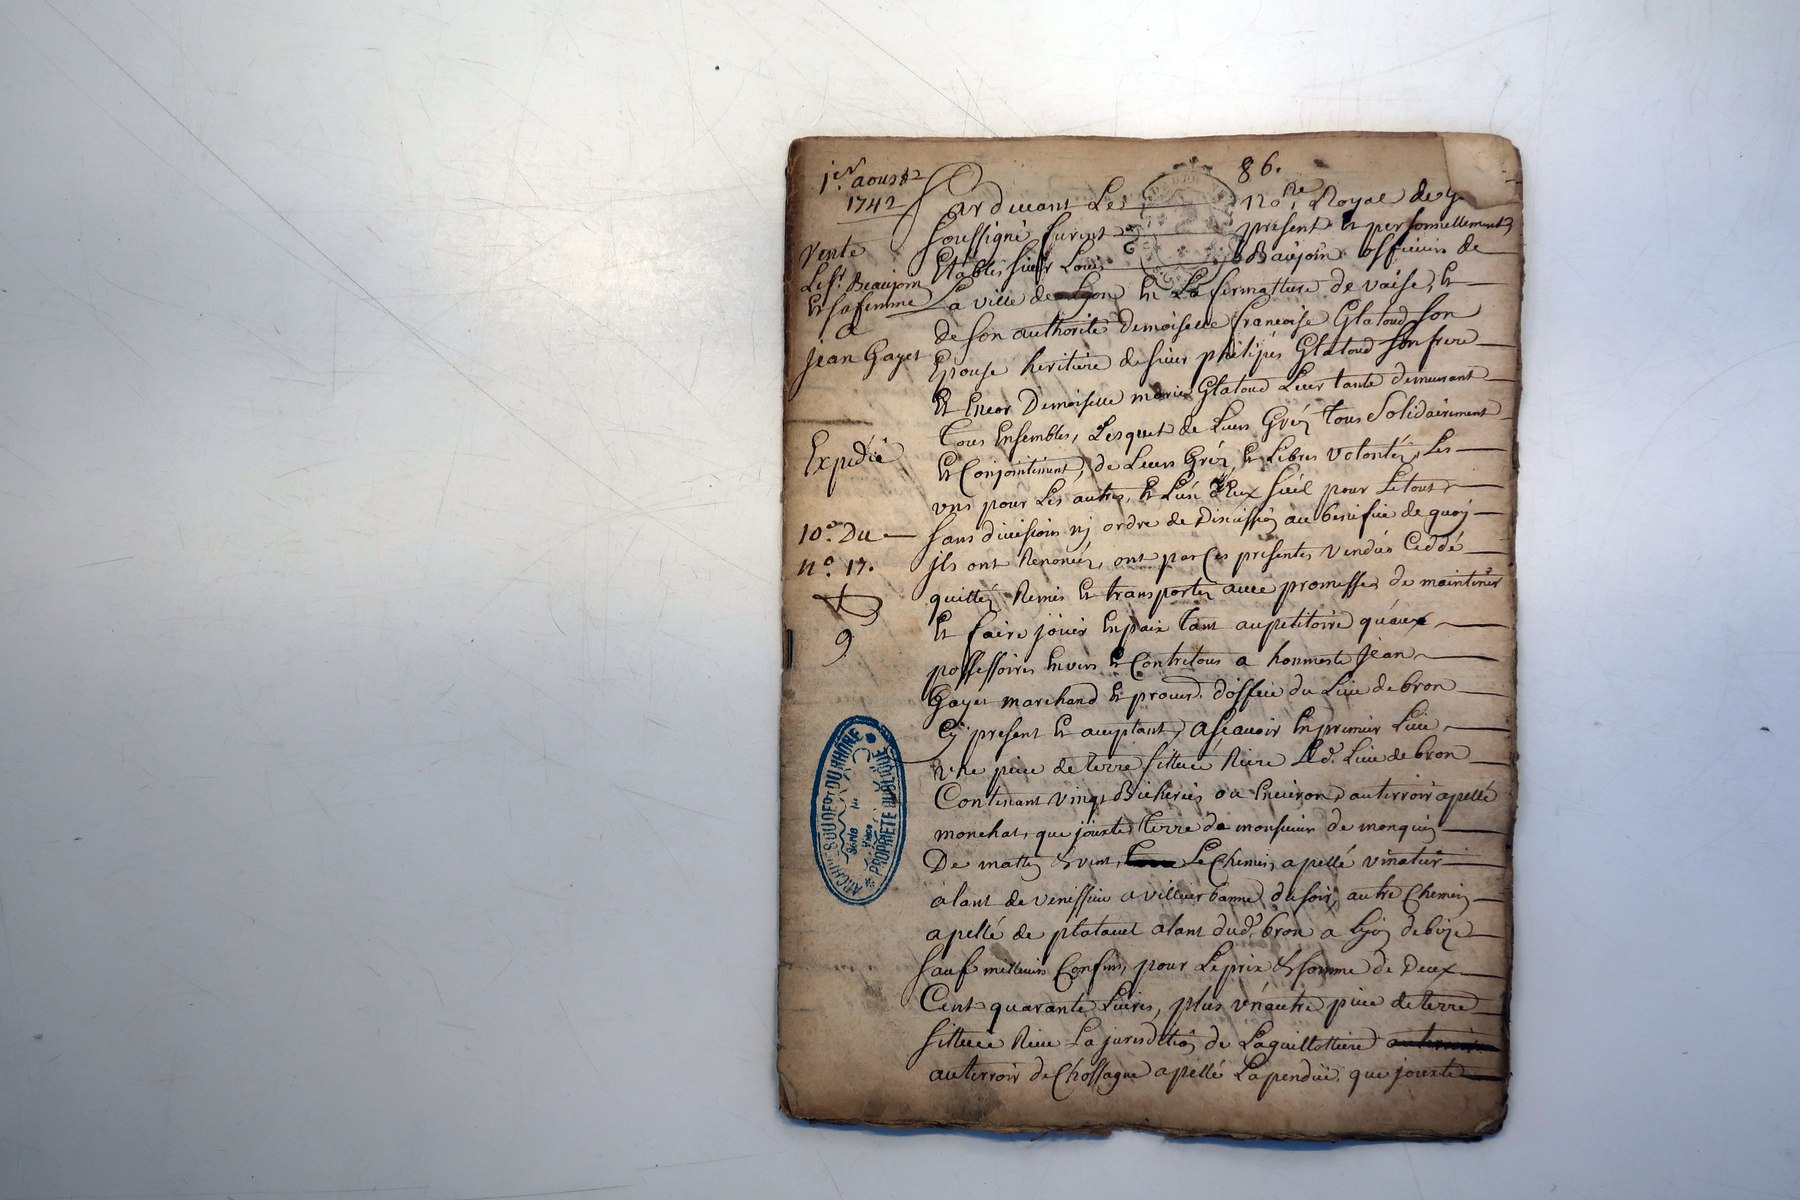 1er aoust
1742
Vente
Le sr. Beaujoin
Et sa femme
a
jean Gayet
Expedié
10e. Du
n°. 17.
9
86.
Pardevant Le no.re Royal de
soussigné furent present Et personnellement
Etablis sieur Louis Baujoin officier de
La ville de Lyon Et La de vaise, Et
de son authorité demoiselle francoise Glatoud son
Epouse heritiere de sieur philipes Glatoud son frere
Et Encor Demoiselle marie Glatoud Leur tante demeurant
Tous Ensembles, Lesquel de Leurs Gréz tous Solidairement
Et Conjointement, de Leurs Gréz, Et Libres volontéz, Les
uns pour Les autres, Et L'un d'Eux seul pour Le tout,
sans division nj ordre de Discussion au benefice de quoy
jls ont Renoncéz, ont par Ces presentes vendus Ceddé
quittéz Remis Et transportez avec promesses de maintenir
Et faire jouir En paix tant au petitoire qu'aux
possessoires Envers Et Contre tous a honneste jean
Gayet marchand Et procur. d'office du Lieu de bron
Cy present Et acceptant, a sçavoir En premier Lieu,
une piece de terre sittuee Riere Led. Lieu de bron
Contenant vingt Bicherées ou Environ, au terroir apellé
monchat, que jouxte Terre de monsieur de
De matin & vent, Le Chemin apellé vinatier
alant de venissieu a villeurbanne du soir, autre Chemin
apellé de platacul alant dud. bron a Lyon de bize
sauf meilleurs Confins, pour Le prix & somme de Deux
Cent quarante Livres, plus un'autre piece de terre
sittuee Riere La jurisdition de Laguillottiere
au terroir de Chossagne apellé Lapendüe, que jouxte
ARCHIVES DU DEPT DU RHÔNE
Série
PROPRIETE PUBLIQUE